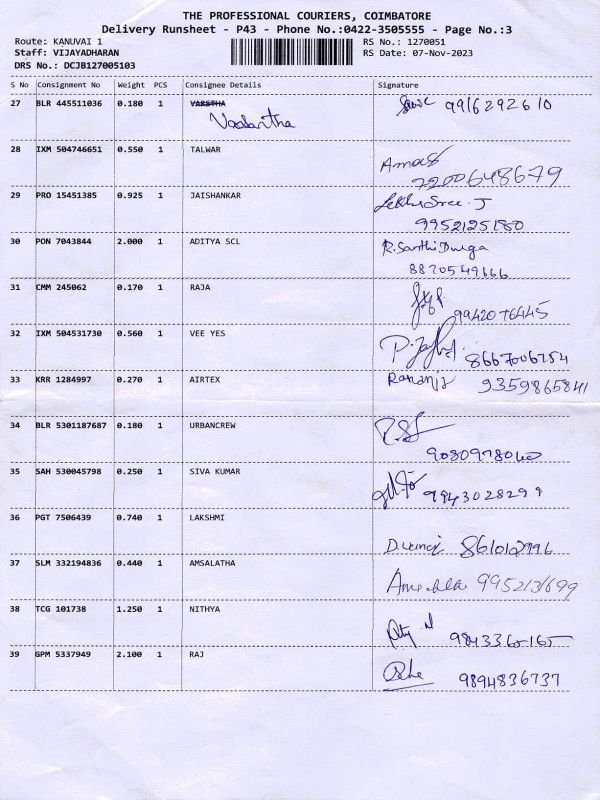 THE PROFESSIONAL COURIERS, COIMBATORE
Delivery Runsheet - P43 - Phone No.:0422-3505555 - Page No.:3
Route: KANUVAI 1 RS No.: 1270051
Staff: VIJAYADHARAN RS Date: 07-Nov-2023
DRS No.: DCJB127005103
S No Consignment No Weight PCS Consignee Details Signature
27 BLR 445511036 0.180 1 VARSTHA 9916292610
28 IXM 504746651 0.550 1 TALWAR
7200648679
29 PRO 15451385 0.925 1 JAISHANKAR
9952125180
30 PON 7043844 2.000 1 ADITYA SCL R.Santhi Durga
8870549666
31 CMM 245062 0.170 1 RAJA
9942076445
32 IXM 504531730 0.560 1 VEE YES
8667006754
33 KRR 1284997 0.270 1 AIRTEX 9359865841
34 BLR 5301187687 0.180 1 URBANCREW
35 SAH 530045798 0.250 1 SIVA KUMAR
9943028299
36 PGT 7506439 0.740 1 LAKSHMI
37 SLM 332194836 0.440 1 AMSALATHA
38 TCG 101738 1.250 1 NITHYA
39 GPM 5337949 2.100 1 RAJ
9894836737